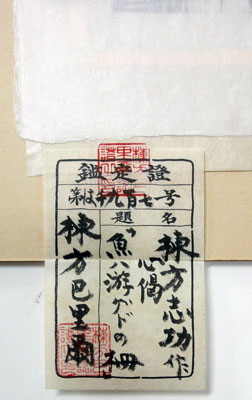 鑑定證
第は十九百七号
題名
棟方志功作
心偈
魚八游ガドの柵
棟方巴里爾